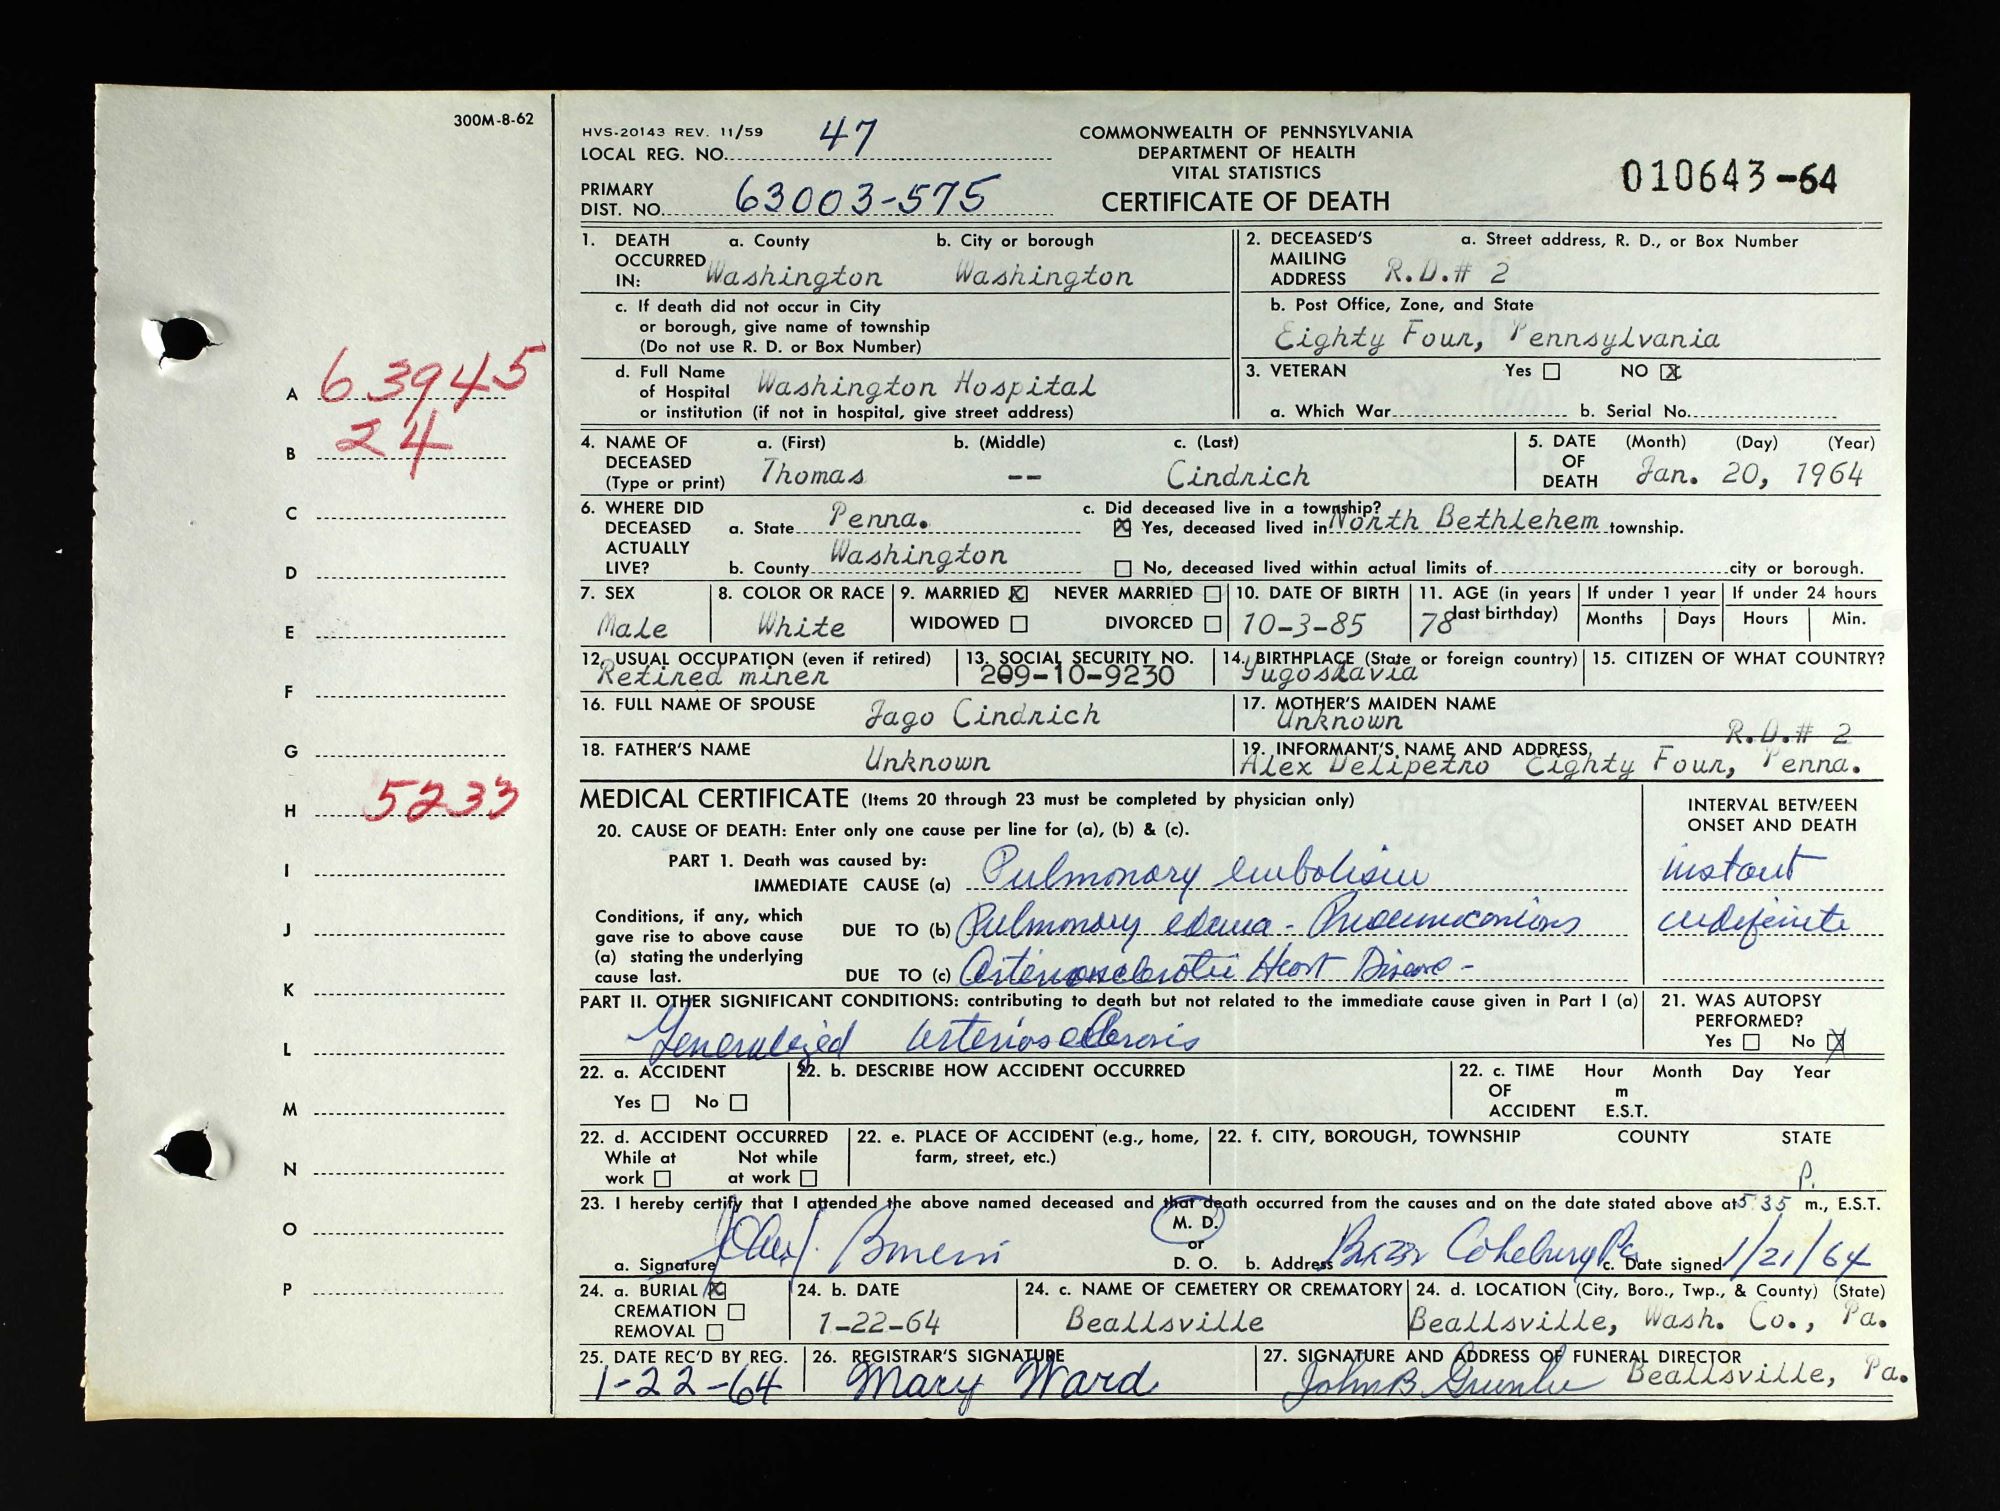 300M-8-62
HVS-20143 REV. 11/59
LOCAL REG. NO. 47
PRIMARY
DIST. NO. 63003-575
COMMONWEALTH OF PENNSYLVANIA
DEPARTMENT OF HEALTH
VITAL STATISTICS
CERTIFICATE OF DEATH
010643-64
A 63945
B 24
C
D
E
F
G
H 5233
I
J
K
L
M
N
O
P
1. DEATH OCCURRED IN: a. County Washington b. City or borough Washington
c. If death did not occur in City
or borough, give name of township
(Do not use R. D. or Box Number)
d. Full Name
of Hospital Washington Hospital
or institution (if not in hospital, give street address)
2. DECEASED'S MAILING ADDRESS a. Street address, R. D., or Box Number
R.D.# 2
b. Post Office, Zone, and State
Eighty Four, Pennsylvania
3. VETERAN Yes ☐ NO ☒
a. Which War b. Serial No.
4. NAME OF DECEASED (Type or print) a. (First) b. (Middle) c. (Last)
Thomas -- Cindrich
5. DATE OF DEATH (Month) (Day) (Year)
Jan. 20, 1964
6. WHERE DID DECEASED ACTUALLY LIVE? a. State Penna.
b. County Washington
c. Did deceased live in a township?
☒ Yes, deceased lived in North Bethlehem township.
☐ No, deceased lived within actual limits of city or borough.
7. SEX Male
8. COLOR OR RACE White
9. MARRIED ☒ NEVER MARRIED ☐
WIDOWED ☐ DIVORCED ☐
10. DATE OF BIRTH 10-3-85
11. AGE (in years last birthday) 78
If under 1 year Months Days
If under 24 hours Hours Min.
12. USUAL OCCUPATION (even if retired) Retired miner
13. SOCIAL SECURITY NO. 209-10-9230
14. BIRTHPLACE (State or foreign country) Yugoslavia
15. CITIZEN OF WHAT COUNTRY?
16. FULL NAME OF SPOUSE Jago Cindrich
17. MOTHER'S MAIDEN NAME Unknown
18. FATHER'S NAME Unknown
19. INFORMANT'S NAME AND ADDRESS R.D.# 2
Alex Delipetro Eighty Four, Penna.
MEDICAL CERTIFICATE (Items 20 through 23 must be completed by physician only)
INTERVAL BETWEEN ONSET AND DEATH
20. CAUSE OF DEATH: Enter only one cause per line for (a), (b) & (c).
PART 1. Death was caused by:
IMMEDIATE CAUSE (a) Pulmonary embolism instant
Conditions, if any, which gave rise to above cause (a) stating the underlying cause last.
DUE TO (b) Pulmonary edema - Pneumuconious indefinite
DUE TO (c) Arteriosclerotic Heart Disease -
PART II. OTHER SIGNIFICANT CONDITIONS: contributing to death but not related to the immediate cause given in Part I (a)
Generalized arteriosclerosis
21. WAS AUTOPSY PERFORMED?
Yes ☐ No ☒
22. a. ACCIDENT
Yes ☐ No ☐
22. b. DESCRIBE HOW ACCIDENT OCCURRED
22. c. TIME OF ACCIDENT Hour Month Day Year
m
E.S.T.
22. d. ACCIDENT OCCURRED
While at work ☐ Not while at work ☐
22. e. PLACE OF ACCIDENT (e.g., home, farm, street, etc.)
22. f. CITY, BOROUGH, TOWNSHIP COUNTY STATE
P.
23. I hereby certify that I attended the above named deceased and that death occurred from the causes and on the date stated above at 5:35 m., E.S.T.
a. Signature
M. D.
or
D. O.
b. Address Cokeburg Pa
c. Date signed 1/21/64
24. a. BURIAL ☒
CREMATION ☐
REMOVAL ☐
24. b. DATE 1-22-64
24. c. NAME OF CEMETERY OR CREMATORY Beallsville
24. d. LOCATION (City, Boro., Twp., & County) (State)
Beallsville, Wash. Co., Pa.
25. DATE REC'D BY REG. 1-22-64
26. REGISTRAR'S SIGNATURE Mary Ward
27. SIGNATURE AND ADDRESS OF FUNERAL DIRECTOR
John B Greenlee Beallsville, Pa.